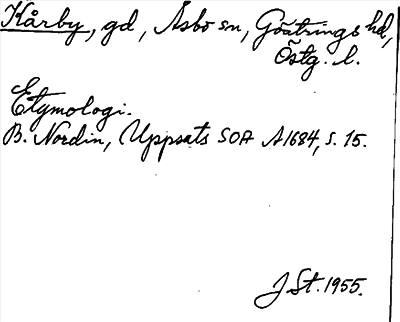 Kårby, gd, Åsbo sn, Göstrings hd,
Östg. l.
Etymologi.
B. Nordin, Uppsats SOA A1684, s. 15.
J St. 1955.